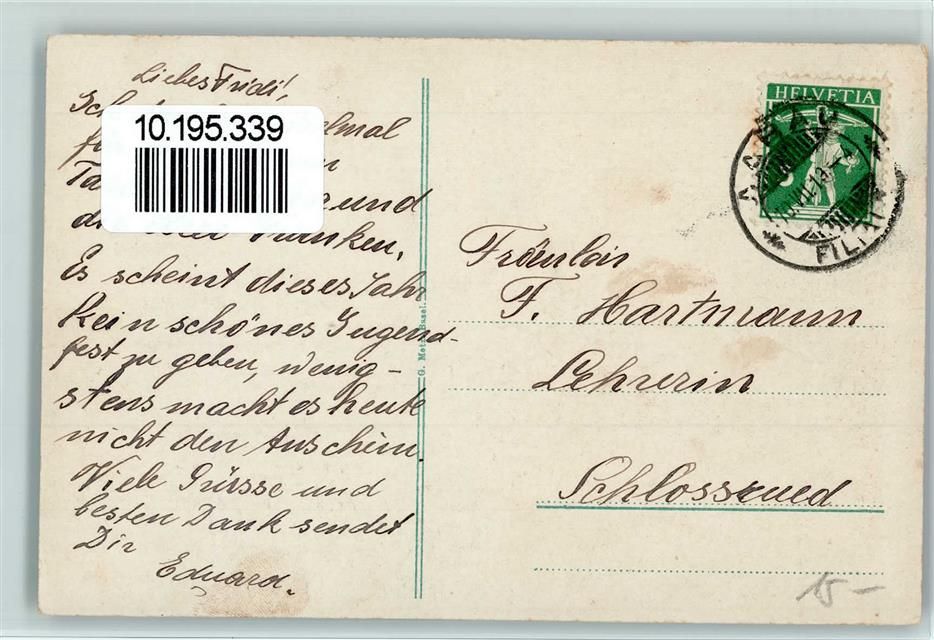 Liebes Fridi!
10.195.339
und
danken,
Es scheint dieses Jahr
kein schönes Jugend-
fest zu geben, wenig-
stens macht es heute
nicht den Anschein
Viele Grüsse und
besten Dank sendet
Dir
Eduard.
G. Metz, Basel.
HELVETIA
AARAU
FILIALE
Fräulein
F. Hartmann
Lehrerin
Schlossrued
15 –